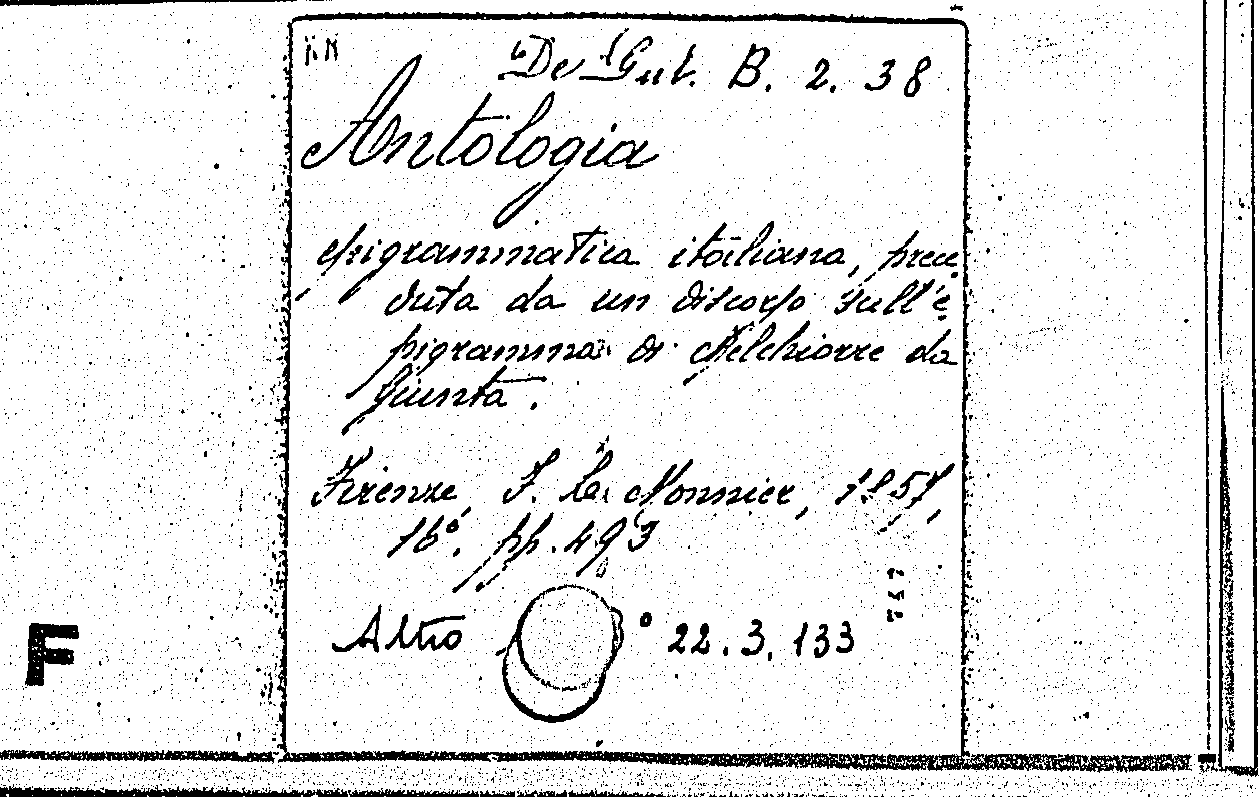 De Gub. B. 2. 38
Antologia
epigrammatica italiana, prece
duta da un discorso sull'e
pigramma di Melchiorre da
Giunta.
Firenze, F. Le Monnier, 1857,
16°. pp. 493
Altro ° 22. 3. 133
F